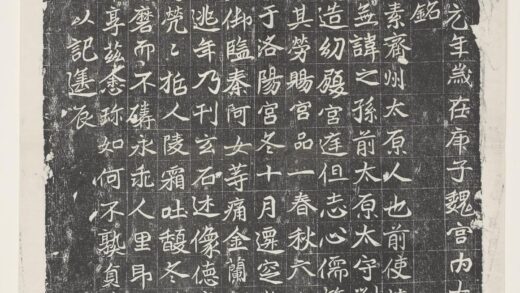 元年歲在庚子魏宮內大
銘
素齊州太原人也前使
無諱之孫前太原太守劉
造幼履宮庭但志心儒
其勞賜宮品一春秋六
于洛陽宮冬十月遷窆
御監秦阿女等痛金蘭
逃年乃刊玄石述像德
人陵霜吐馥冬
磨而不磷永乖人里即
享茲珎如何不熟
以記辰